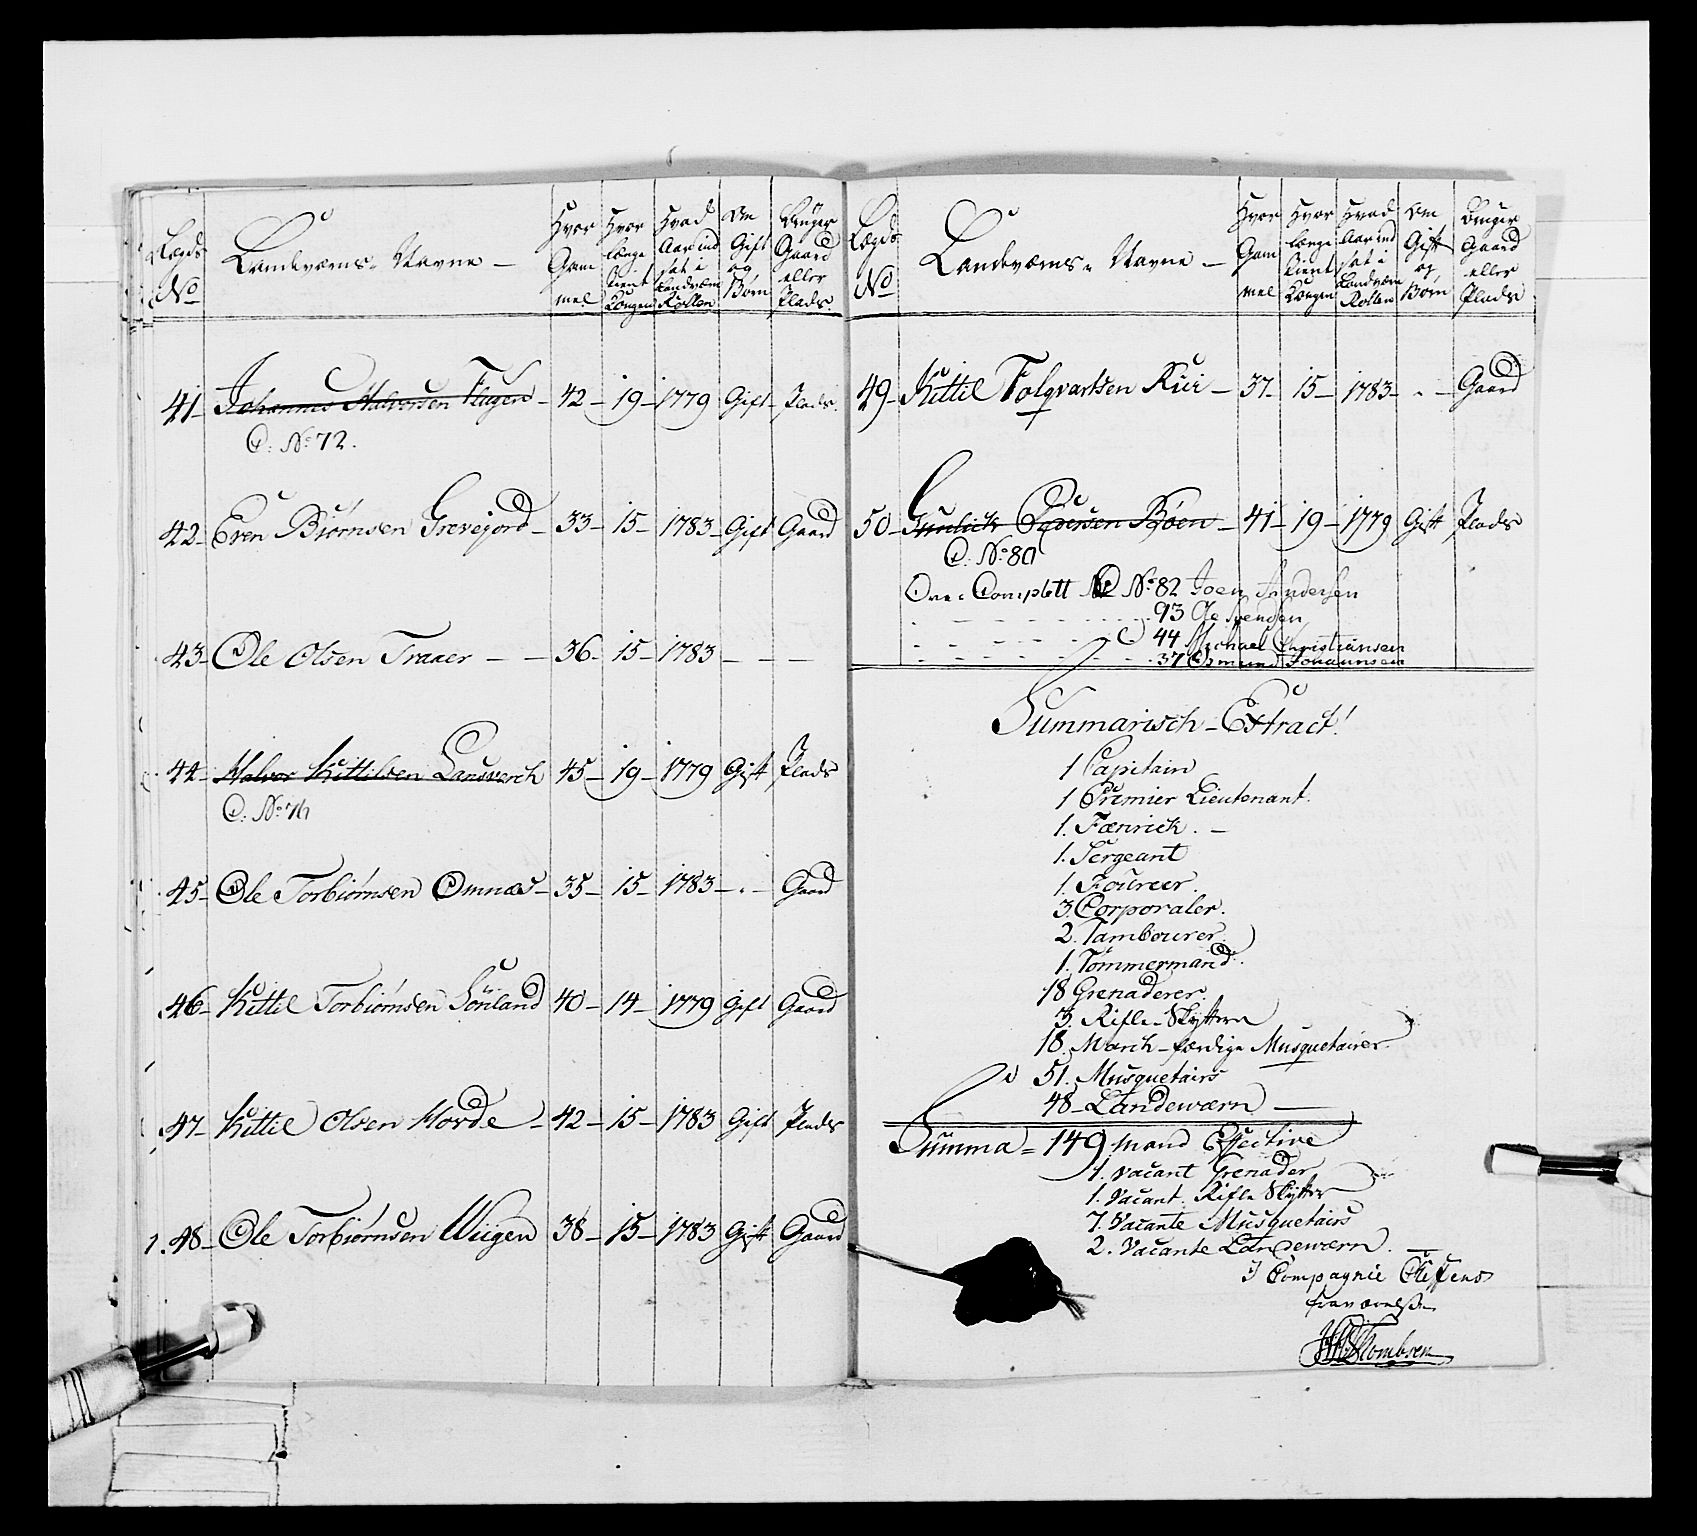 Lægds No
Landeværns Navne
Hvor Gam mel
Hvor længe tient Kongen
Hvad Aar ind sat i Landværn Rollen
Om Gift og Børn
Bruger Gaard eller Plads
41 Johannes Halvorsen Flugen 42 19 1779 Gift Plads
C: No 72.
42 Even Biørnsen Grevejord 33 15 1783 Gift Gaard
43 Ole Olsen Traaer 36 15 1783
44 Halvor Kittilsen Landsverch 45 19 1779 Gift Plads
C: No 76
45 Ole Torbiørnsen Omnæs 35 15 1783 Gaard
46 Kittil Torbiørnsen Sønland 40 14 1779 Gift Gaard
47 Kittil Olsen Hovde 42 15 1783 Gift Plads
1. 48 Ole Torbiørnsen Wiigen 38 15 1783 Gift Gaard
Lægds No
Landeværns Navne
Hvor Gam mel
Hvor længe tient Kongen
Hvad Aar ind sat i Landværn Rollen
Om Gift og Børn
Bruger Gaard eller Plads
49 Kittil Folqvartsen Kiii 37 15 1783 Gaard
50 Gunlich Pedersen Bøen 41 19 1779 Gift Plads
C: No 80
Over Complett No 82 Joen Andersen
93 Ole Svendsen
C 44 Michael Christiansen
37 Osmund Johannsen
Summarisch Extract!
1 Capitain
1 Premier Lieutenant.
1. Fænrick.
1. Sergeant
1. Foureer.
3. Corporaler.
2. Tambourer
1. Tømmermand.
18 Grenaderer
3. Rifle-Skyttere
18. March-færdige Musquetairer
51. Musquetairs
48 Landewærn
Summa = 149 Mand Effective
1. vacant Grenader
1. Vacant Rifle Skytter
7. Vacante Musquetairs
2. Vacante Landewærn.
I Compagnie Cheffens
fraværelse